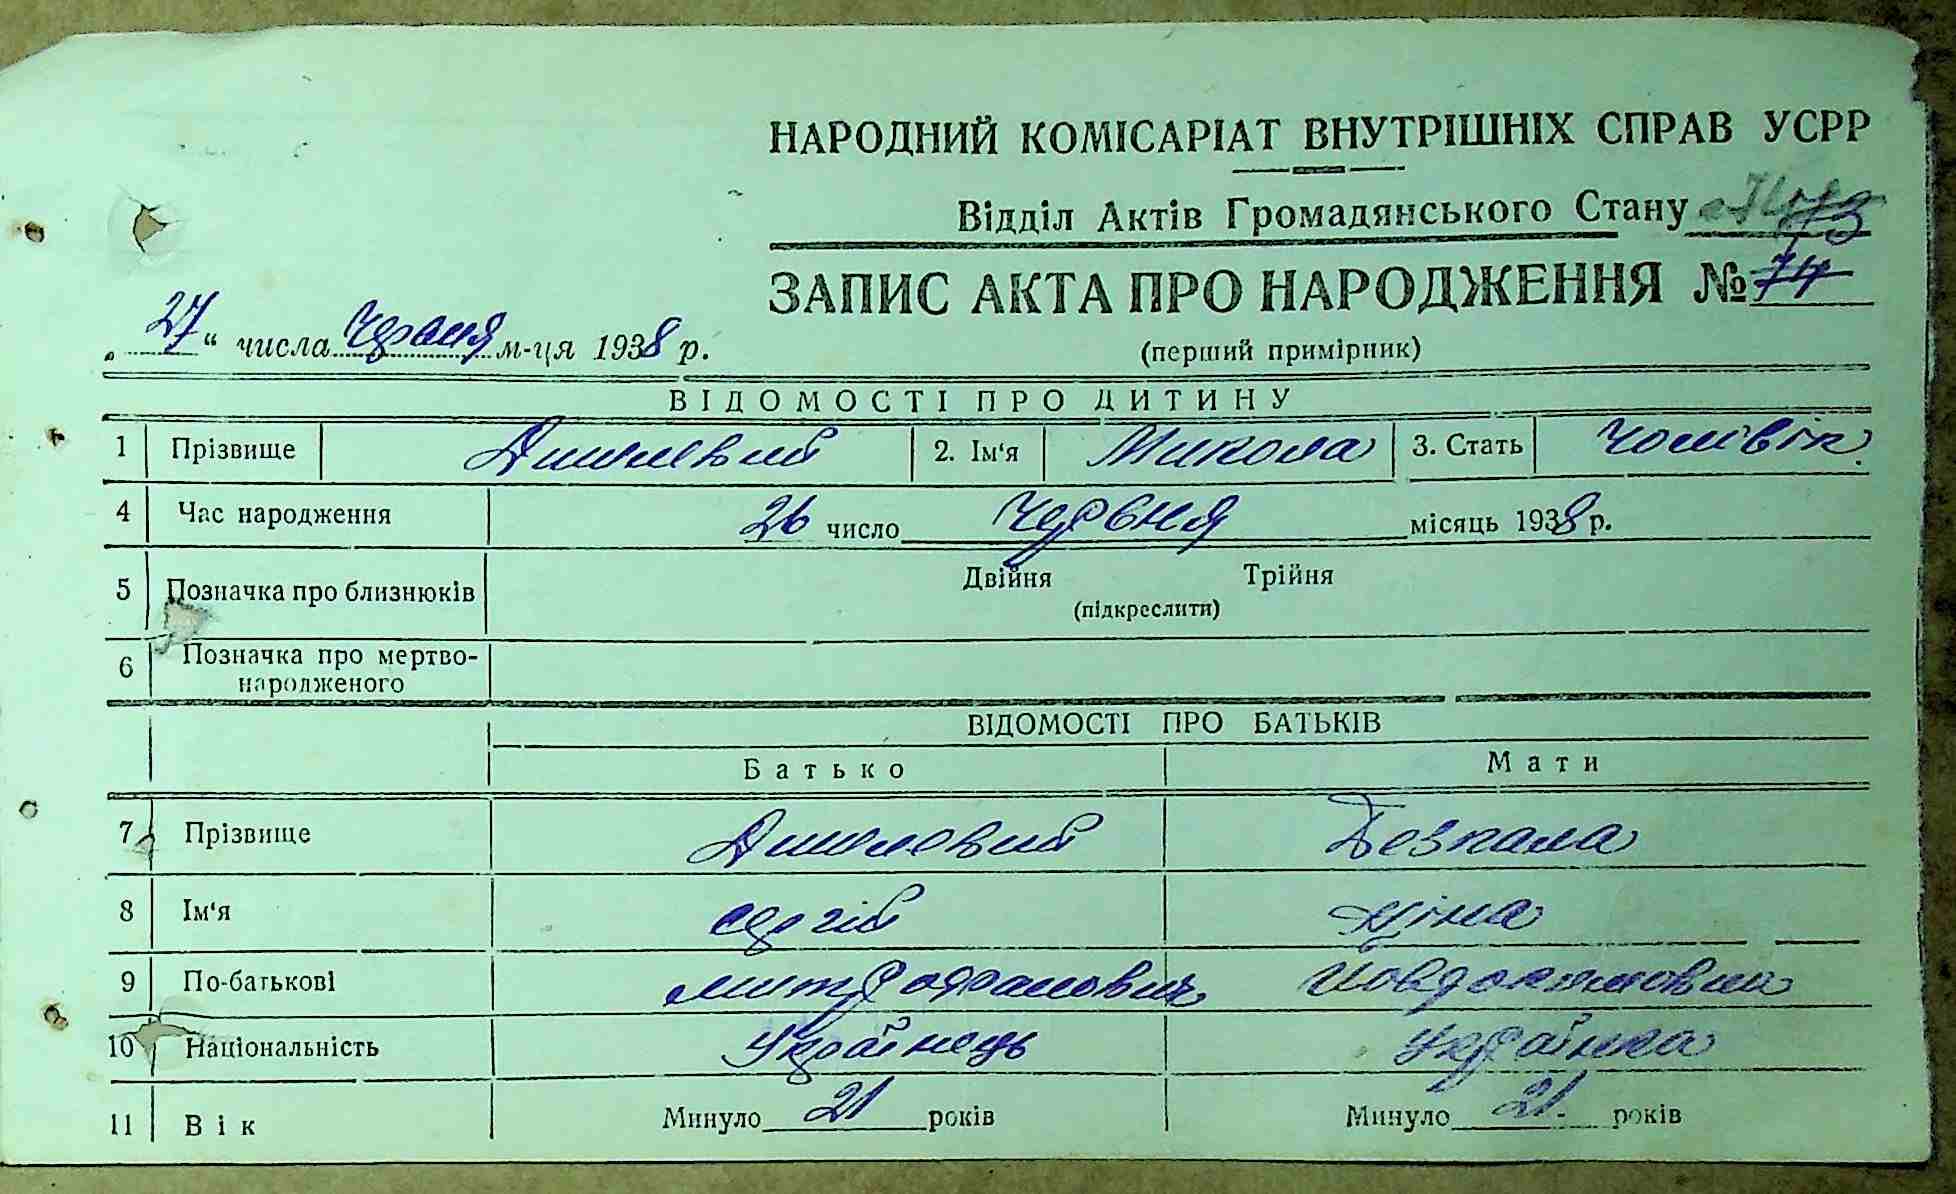 НАРОДНИЙ КОМІСАРІАТ ВНУТРІШНІХ СПРАВ УСРР
Відділ Актів Громадянського Стану
73
ЗАПИС АКТА ПРО НАРОДЖЕННЯ № 74
„27“ числа Червня м-ця 1938 р.
(перший примірник)
ВІДОМОСТІ ПРО ДИТИНУ
1 Прізвище Дишлевий 2. Ім‘я Микола 3. Стать Чоловік
4 Час народження 26 число Червня місяць 1938 р.
5 Позначка про близнюків Двійня Трійня
(підкреслити)
6 Позначка про мертво-
народженого
ВІДОМОСТІ ПРО БАТЬКІВ
Батько Мати
7 Прізвище Дишлевий Безпала
8 Ім‘я Сергій Ніна
9 По-батькові Митрофанович
10 Національність Українець Українка
11 Вік Минуло 21 років Минуло 21 років